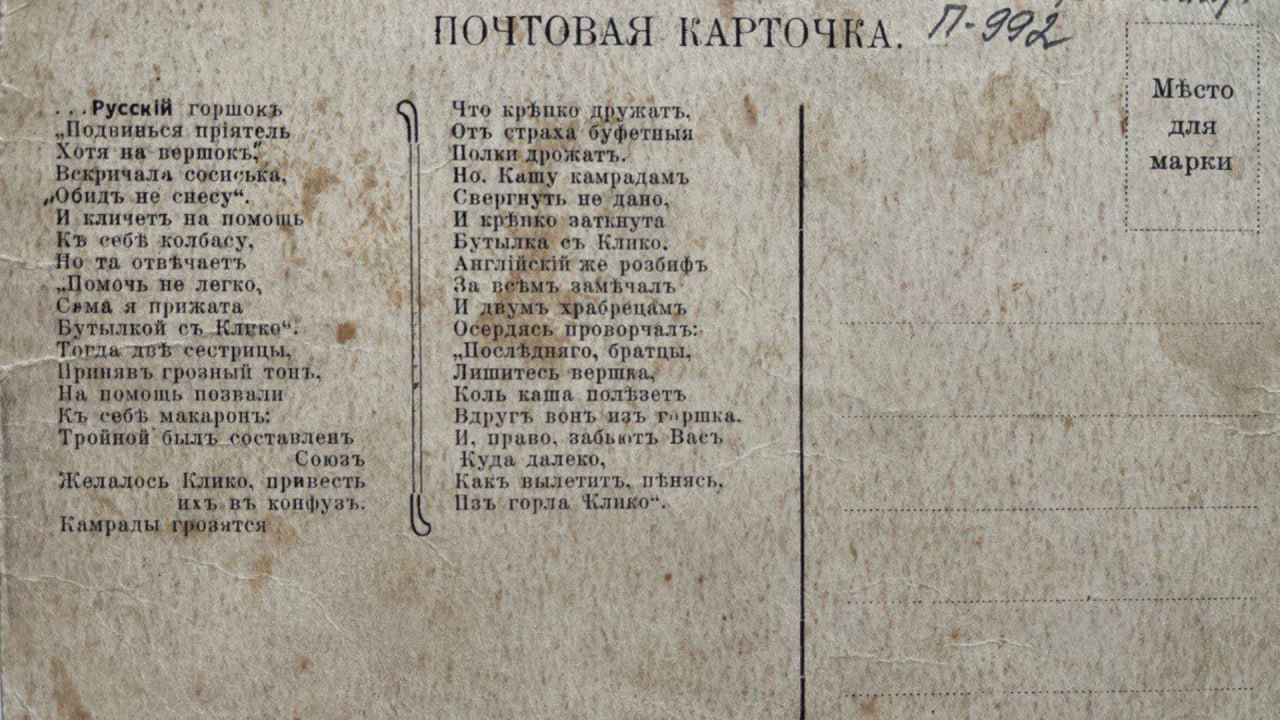 ПОЧТОВАЯ КАРТОЧКА.
П-992
...Русскій горшокъ
„Подвинься пріятель
Хотя на вершокъ,“
Вскричала сосиська,
„Обидъ не снесу“.
И кличетъ на помощь
Къ себѣ колбасу,
Но та отвѣчаетъ
„Помочь не легко,
Сама я прижата
Бутылкой съ Клико“.
Тогда двѣ сестрицы,
Принявъ грозный тонъ,
На помощь позвали
Къ себѣ макаронъ:
Тройной былъ составленъ
Союзъ
Желалось Клико, привесть
ихъ въ конфузъ.
Камрады грозятся
Что крѣпко дружатъ,
Отъ страха буфетныя
Полки дрожатъ.
Но. Кашу камрадамъ
Свергнуть не дано,
И крѣпко заткнута
Бутылка съ Клико.
Англійскій же розбифъ
За всѣмъ замѣчалъ
И двумъ храбрецамъ
Осердясь проворчалъ:
„Послѣдняго, братцы,
Лишитесь вершка,
Коль каша полѣзетъ
Вдругъ вонъ изъ горшка.
И, право, забьютъ Васъ
Куда далеко,
Какъ вылетитъ, пѣнясь,
Изъ горла Клико“.
Мѣсто
для
марки